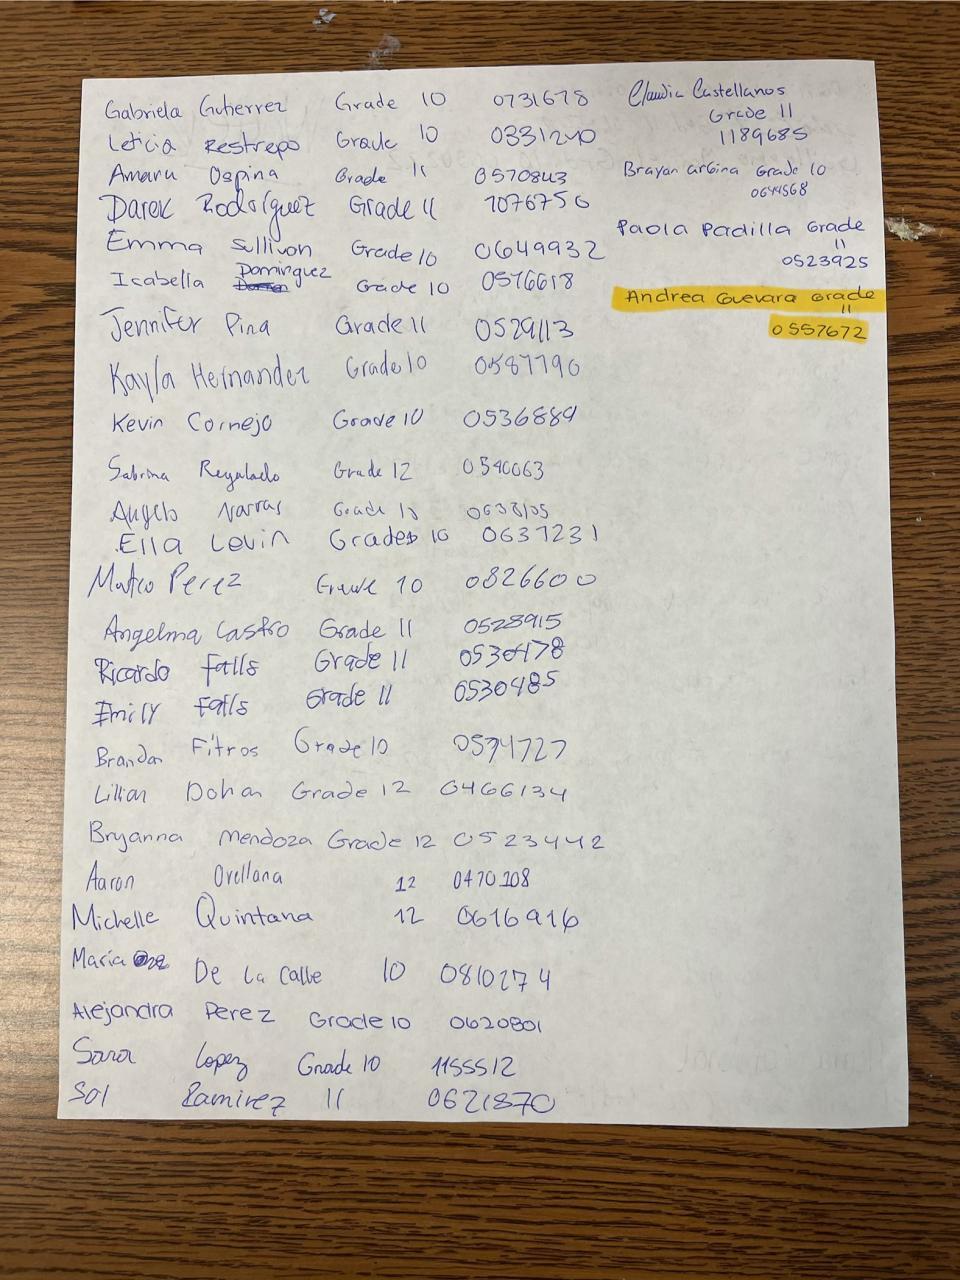 Gabriela Gutierrez Grade 10 0731678
Leticia Restrepo Grade 10 0331240
Amaru Ospina Grade 11 0570843
Darek Rodríguez Grade 11 1076756
Emma Sullivan Grade 10 0649932
Isabella Dominguez Grade 10 0576618
Jennifer Pina Grade 11 0529113
Kayla Hernandez Grade 10 0587790
Kevin Cornejo Grade 10 0536889
Sabrina Regalado Grade 12 0540063
Angelo Narras Grade
Ella Levin Grade 10 0637231
Mateo Perez Grade 10 0826600
Angelma Castro Grade 11 0528915
Ricardo Falls Grade 11 0530478
Emily Falls Grade 11 0530485
Brandon Fitros Grade 10
Lillian Dohan Grade 12 0466134
Bryanna Mendoza Grade 12 0523442
Aaron Orellana 12 0470208
Michelle Quintana 12 0616916
Maria De La Calle 10 0810274
Alejandra Perez Grade 10 0620801
Sara Lopez Grade 10 1155512
Sol Ramirez 11 0621870
Claudia Castellanos
Grade 11
1189685
Brayan Urbina Grade 10
0644568
Paola Padilla Grade
11
0523925
Andrea Guevara Grade
11
0557672